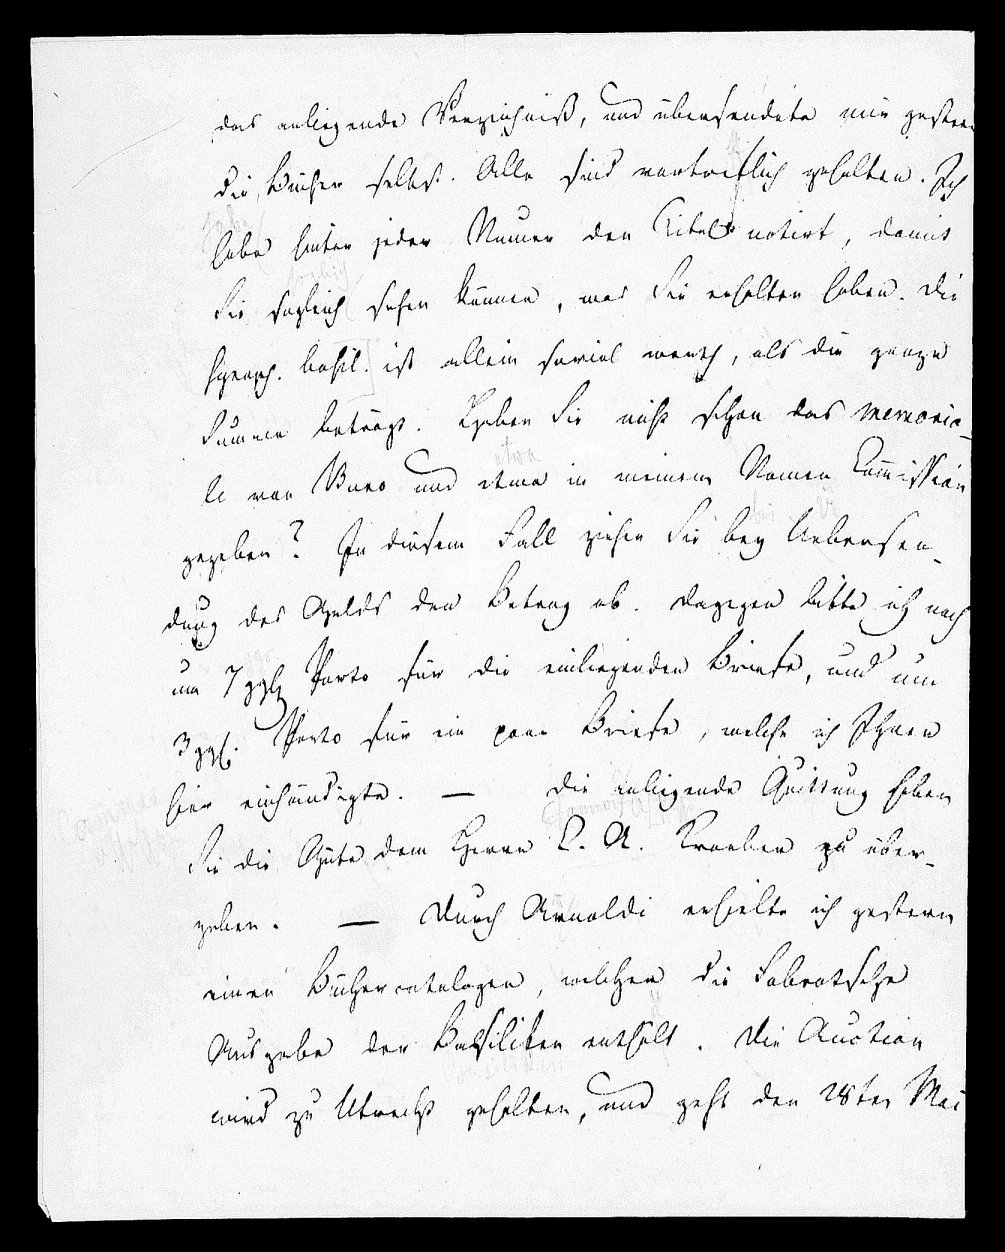 das anliegende Verzeichniß, und übersendete mir gestern
die Bücher selbst. Alle sind vortrefflich gehalten. Ich
habe hinter jeder Numer den Titel notirt, damit
Sie sogleich sehen können, was Sie erhalten haben. Die
basil. ist allein soviel werth, als die ganze
Summe beträgt. Haben Sie nicht schon das memoria-
le von Buno und etwa in meinem Namen Commission
gegeben? In diesem Fall ziehen Sie bey Uebersen-
dung des Gelds den Betrag ab. Dagegen bitte ich noch
um 7 ggl Porto für die einliegenden Briefe, und um
3 ggl. Porto für ein paar Briefe, welche ich Ihnen
hier einhändigte. — Die anliegende Quittung haben
Sie die Güte dem Herrn L. A. Kraeber zu über-
geben. — Durch Arnoldi erhielte ich gestern
einen Büchercatalogen, welcher die Fabrotsche
Ausgabe der Basiliken enthält. Die Auction
wird zu Utrecht gehalten, und geht den 28ten Mai